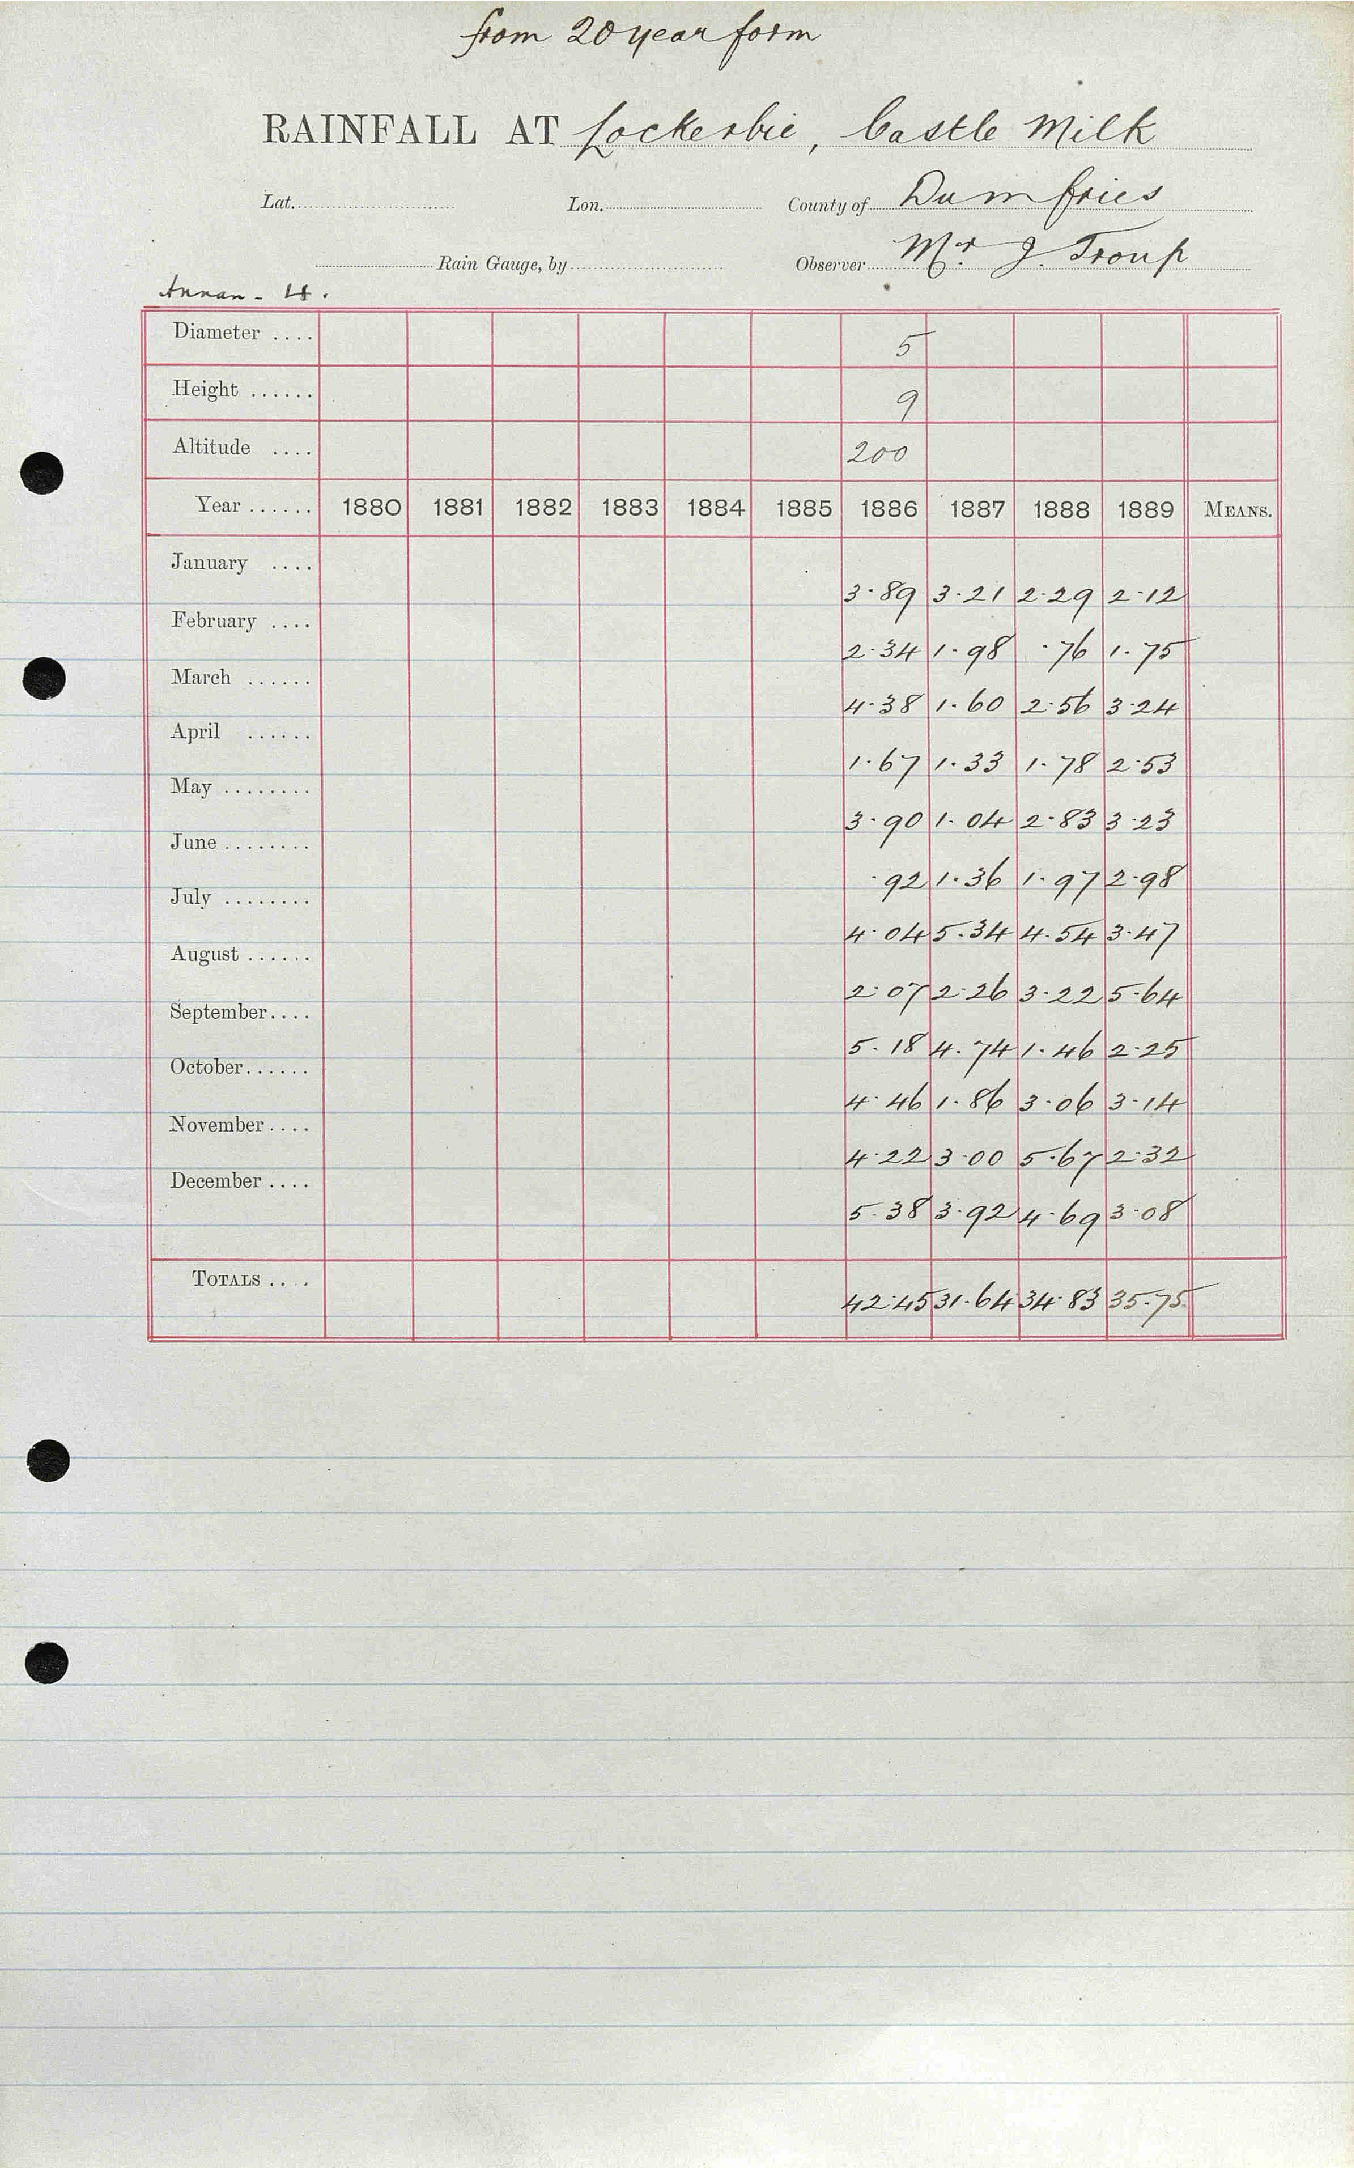 from 20 year form
RAINFALL AT Lockerbie, Castle Milk
Lat. Lon. County of Dumfries
Rain Gauge, by Observer Mr. J. Troup
Annan - 4.
Diameter .... 5
Height ...... 9
Altitude .... 200
Year ...... 1880 1881 1882 1883 1884 1885 1886 1887 1888 1889 MEANS.
January .... 3.89 3.21 2.29 2.12
February .... 2.34 1.98 .76 1.75
March ...... 4.38 1.60 2.56 3.24
April ...... 1.67 1.33 1.78 2.53
May ........ 3.90 1.04 2.83 3.23
June ........ .92 1.36 1.97 2.98
July ........ 4.04 5.34 4.54 3.47
August ...... 2.07 2.26 3.22 5.64
September.... 5.18 4.74 1.46 2.25
October...... 4.46 1.86 3.06 3.14
November.... 4.22 3.00 5.67 2.32
December .... 5.38 3.92 4.69 3.08
TOTALS .... 42.45 31.64 34.83 35.75